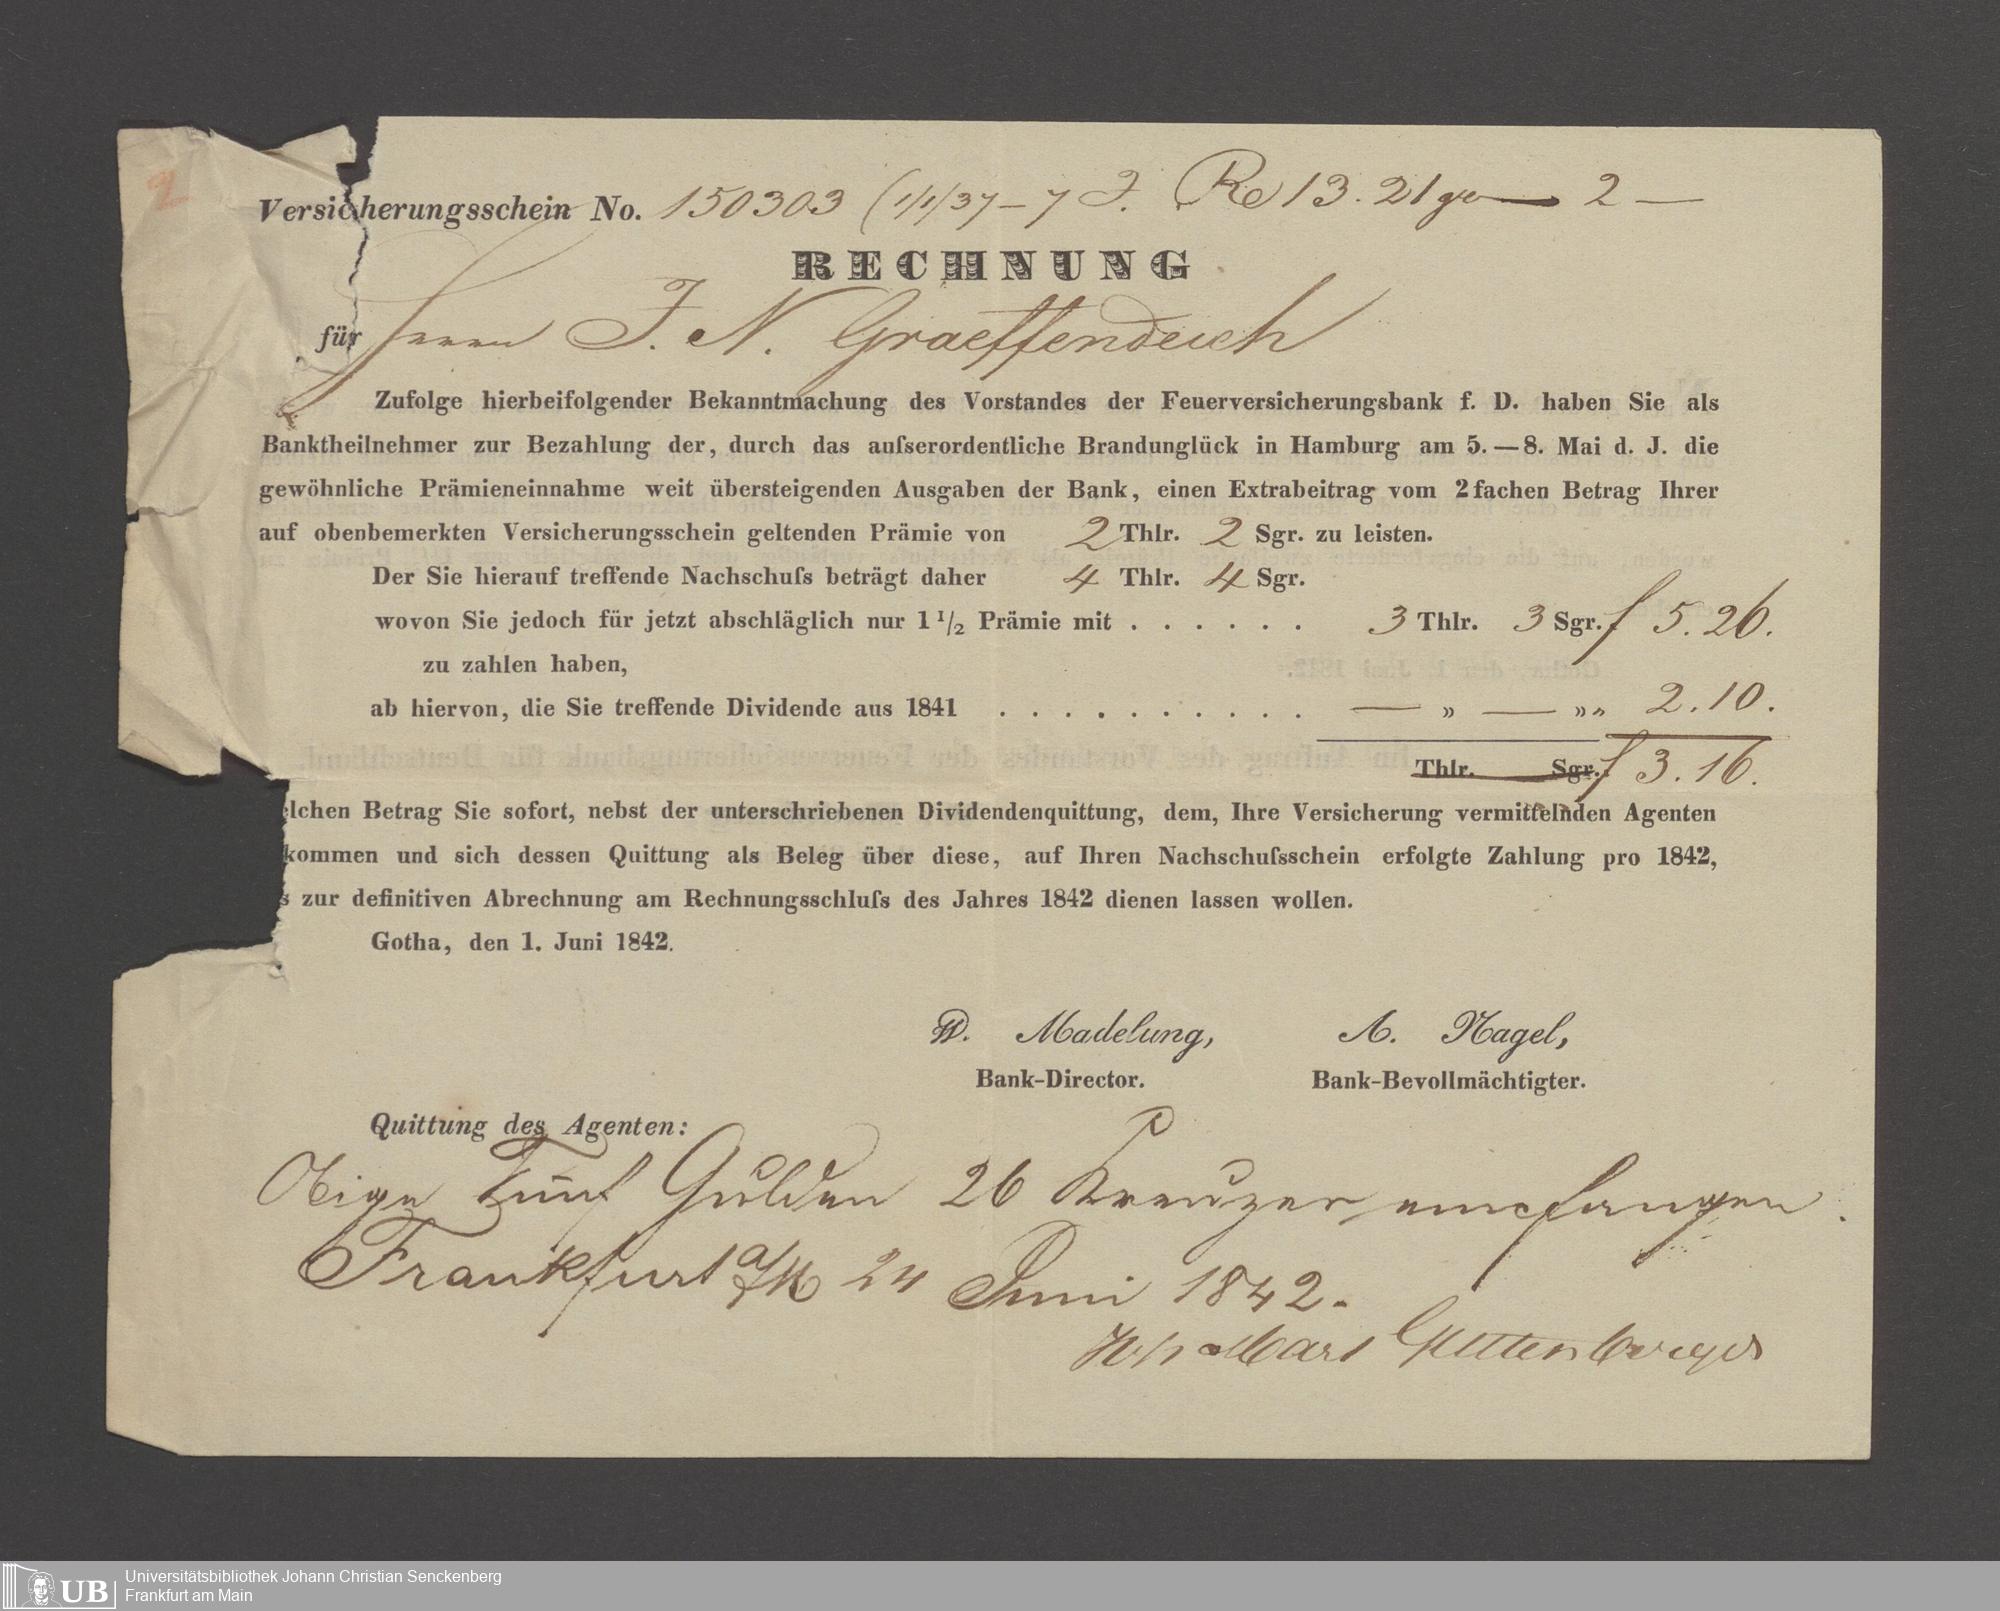 2
Versicherungsschein No. 150303 (1/1/37 – 7 J. 13. 21 2 —
RECHNUNG
für Herrn J. N. Graeffendeich
Zufolge hierbeifolgender Bekanntmachung des Vorstandes der Feuerversicherungsbank f. D. haben Sie als
Banktheilnehmer zur Bezahlung der, durch das aufserordentliche Brandunglück in Hamburg am 5. — 8. Mai d. J. die
gewöhnliche Prämieneinnahme weit übersteigenden Ausgaben der Bank, einen Extrabeitrag vom 2 fachen Betrag Ihrer
auf obenbemerkten Versicherungsschein geltenden Prämie von 2 Thlr. 2 Sgr. zu leisten.
Der Sie hierauf treffende Nachschufs beträgt daher 4 Thlr. 4 Sgr.
wovon Sie jedoch für jetzt abschläglich nur 1 1/2 Prämie mit . . . . . . 3 Thlr. 3 Sgr. f 5. 26.
zu zahlen haben,
ab hiervon, die Sie treffende Dividende aus 1841 . . . . . . . . . . — „ — „ „ 2. 10.
Thlr. Sgr. f 3. 16.
elchen Betrag Sie sofort, nebst der unterschriebenen Dividendenquittung, dem, Ihre Versicherung vermittelnden Agenten
kommen und sich dessen Quittung als Beleg über diese, auf Ihren Nachschufsschein erfolgte Zahlung pro 1842,
s zur definitiven Abrechnung am Rechnungsschlufs des Jahres 1842 dienen lassen wollen.
Gotha, den 1. Juni 1842.
W. Madelung, A. Nagel,
Bank-Director. Bank-Bevollmächtigter.
Quittung des Agenten:
Obige Fünf Gulden 26 Kreuzer empfangen.
Frankfurt a/M 24 Juni 1842.
UB Universitätsbibliothek Johann Christian Senckenberg
Frankfurt am Main